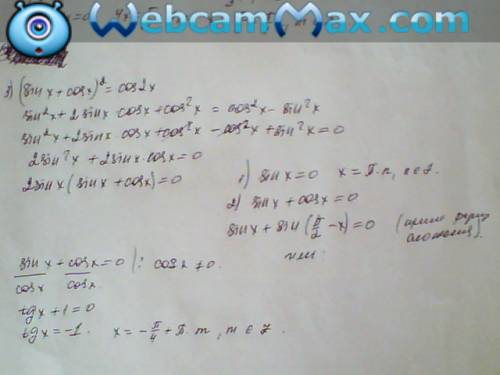 WebcamMax.com
3) (sin x + cos x)² = cos 2x
sin²x + 2 sin x · cos x + cos²x = cos²x − sin²x
sin²x + 2 sin x · cos x + cos²x − cos²x + sin²x = 0
2 sin²x + 2 sin x · cos x = 0
2 sin x (sin x + cos x) = 0
1) sin x = 0 x = π · n, n ∈ Z.
2) sin x + cos x = 0
sin x + sin (π/2 − x) = 0
или:
sin x / cos x + cos x / cos x = 0 | : cos x ≠ 0.
tg x + 1 = 0
tg x = −1. x = −π/4 + π · m, m ∈ Z.